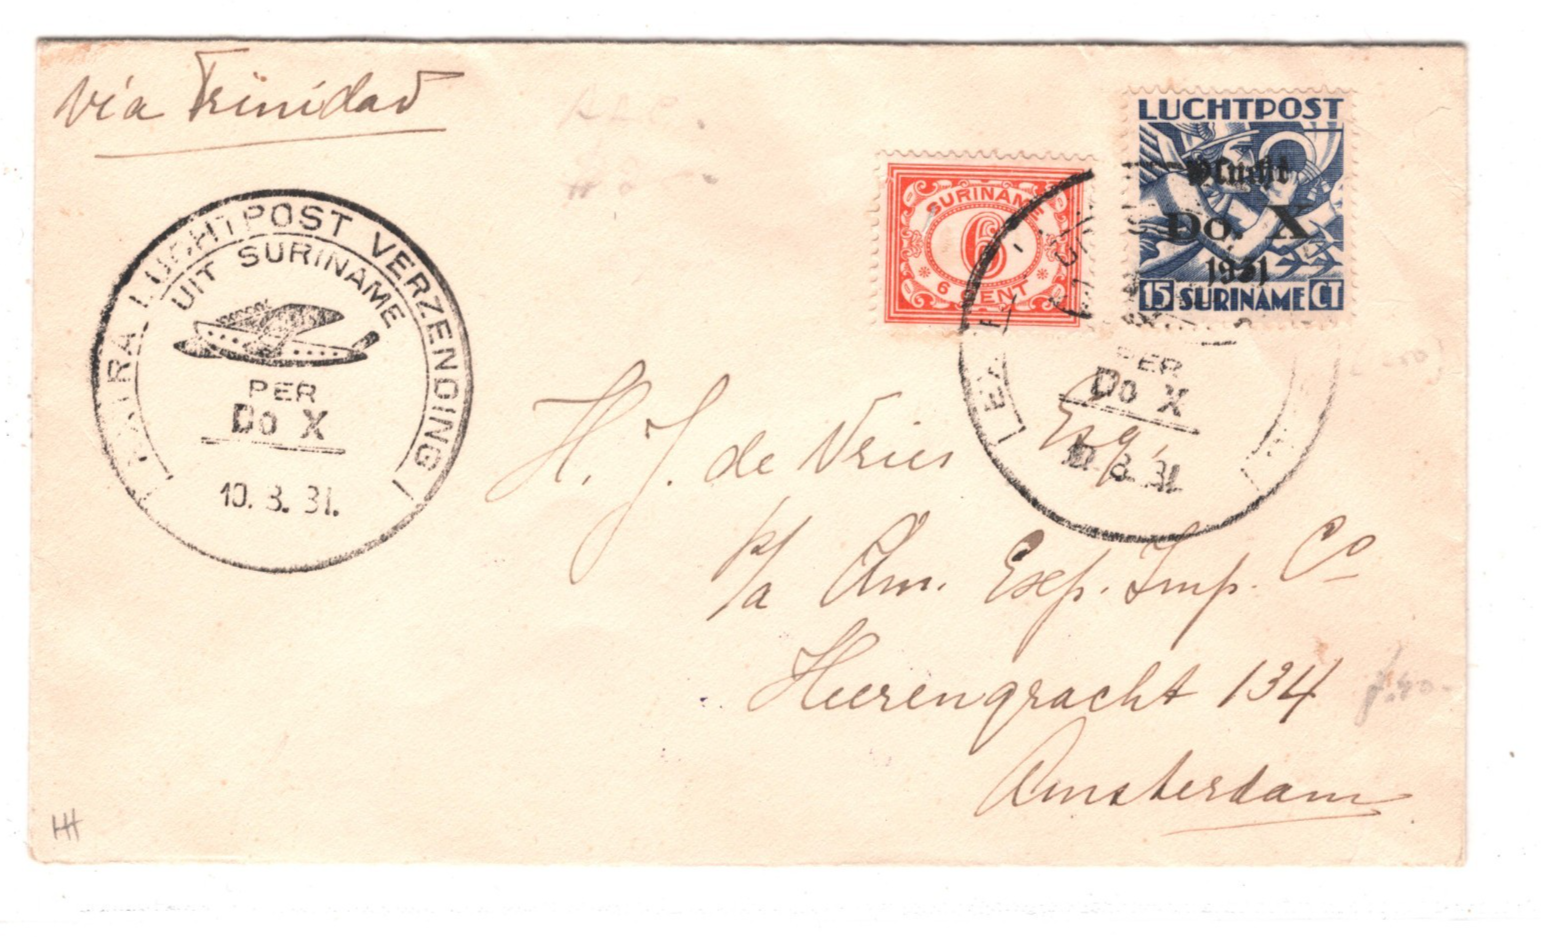 via Trinidad
EXTRA LUCHTPOST VERZENDING
UIT SURINAME
PER
Do X
10. 8. 31.
SURINAME
6
6 CENT
LUCHTPOST
Vlucht
Do. X
1931
15 SURINAME CT
PER
Do X
10. 8. 31.
H. J. de Vries Esq.
p/a Am. Exp. Imp. Co
Heerengracht 134
Amsterdam
HH